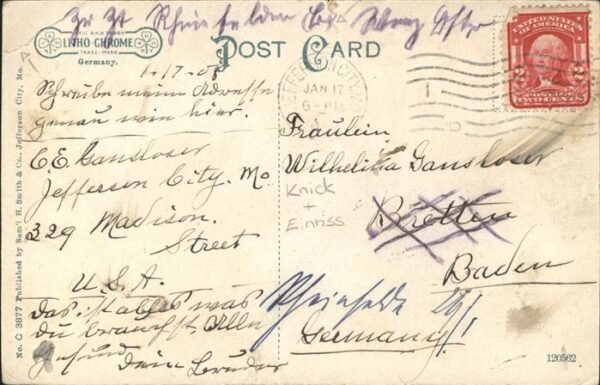 Zr Zt Rheinfelden bei
LITHO-CHROME
TRADE-MARK
Germany.
POST CARD
UNITED STATES
OF AMERICA
2 2
TWO CENTS
JEFFERSON CITY, MO
JAN 17
6-PM
1-17-08
Schreibe meine Adresse
genau wie hier.
C.E. Gansloser
Jefferson City. Mo
329 Madison.
Street
U.S.A.
Das ist alles was
du brauchst. Alle
Gesund
Dein Bruder
Fräulein
Wilhelmina Gansloser
Knick
+
Einriss
Bretten
Baden
Rheinfelde 29/1
Germany
No. C 3877 Published by Sam'l H. Smith & Co., Jefferson City, Mo.
120562